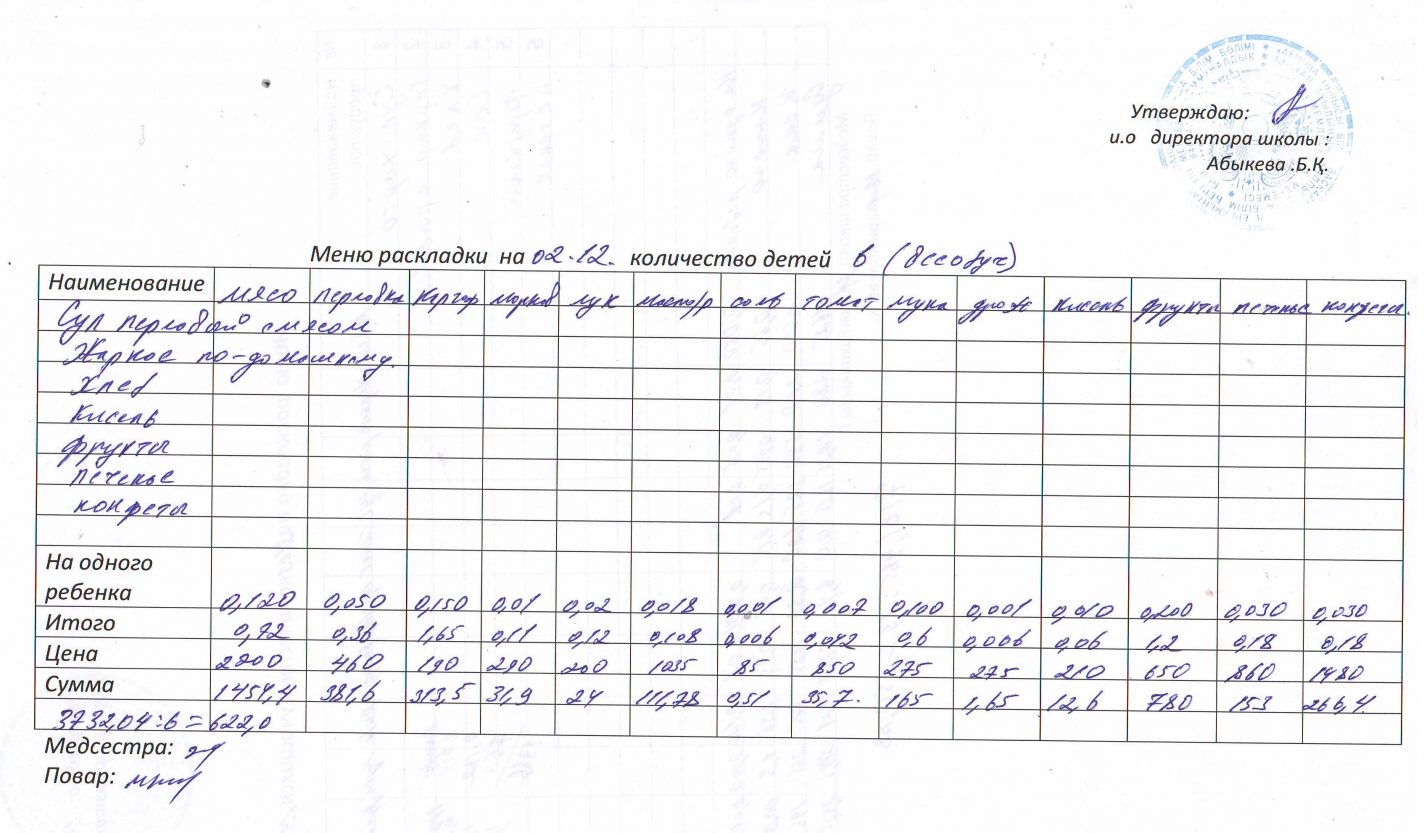 Утверждаю:
и.о директора школы :
Абыкева .Б.Қ.
Меню раскладки на 02.12. количество детей 6 (всеобуч)
Наименование мясо перловка картоф морков лук масло/р соль томат мука дрож кисель фрукты печенье конфеты.
Суп перловой с мясом
Жаркое по-домашнему.
Хлеб
Кисель
фрукты
печенье
конфеты
На одного
ребенка 0,120 0,050 0,150 0,01 0,02 0,018 0,001 0,007 0,100 0,001 0,010 0,200 0,030 0,030
Итого 0,72 0,36 1,65 0,11 0,12 0,108 0,006 0,042 0,6 0,006 0,06 1,2 0,18 0,18
Цена 2200 460 190 290 200 1035 85 850 275 275 210 650 860 1480
Сумма 1454,4 381,6 313,5 31,9 24 111,78 0,51 35,7. 165 1,65 12,6 780 153 266,4.
3732,04:6=622,0
Медсестра:
Повар: